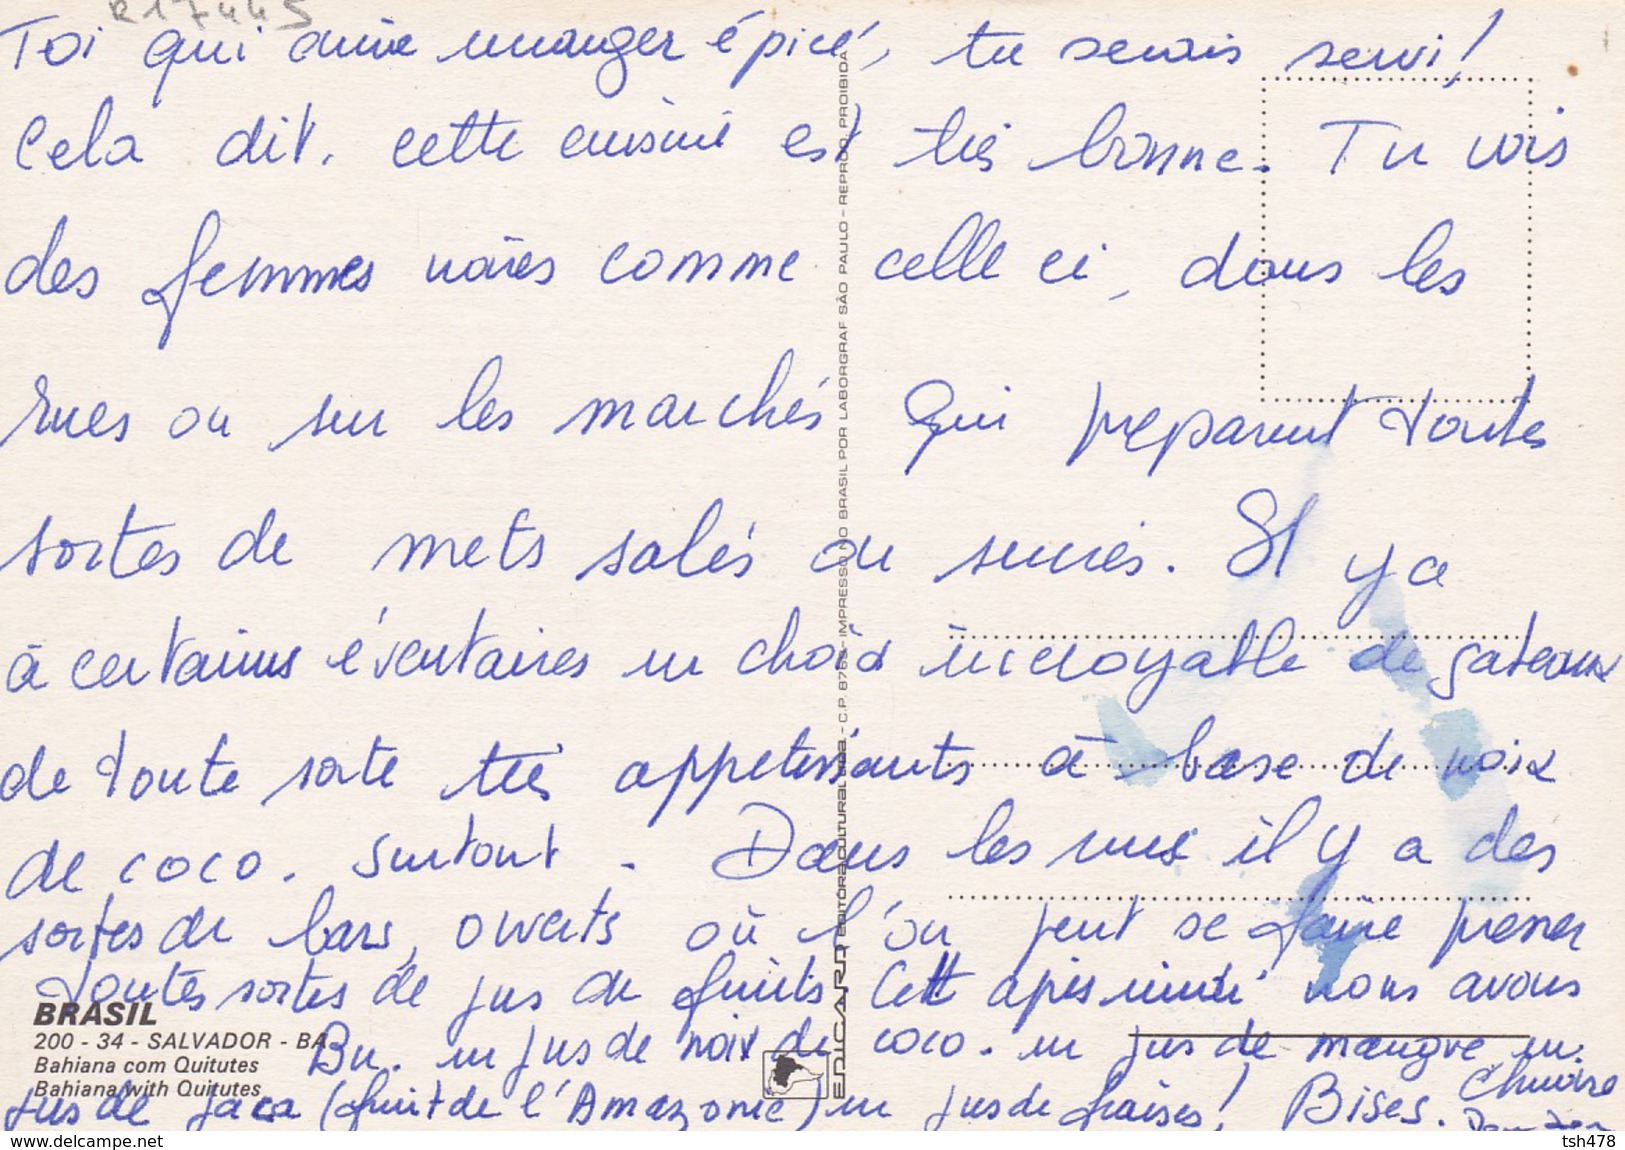 R17445
Toi qui aime manger épicé, tu serais servi!
Cela dit. cette cuisine est très bonne. Tu vois
des femmes noires comme celle ci, dans les
rues ou sur les marchés qui préparent toutes
sortes de mets salés ou sucrés. Il y a
à certains éventaires un choix incroyable de gateaux
de toute sorte très appetissants à base de noix
de coco. surtout. Dans les rues il y a des
sortes de bars, ouverts où l'on peut se faire presser
toutes sortes de jus de fruits. Cette après midi nous avons
Bu. un jus de noix de coco. un jus de mangue un.
jus de jaca (fruit de l'Amazonie) un jus de fraises! Bises.
BRASIL
200 - 34 - SALVADOR - BA.
Bahiana com Quitutes
Bahiana with Quitutes
EDICARD EDITORA CULTURAL LTDA. - C.P. 8755 - IMPRESSO NO BRASIL POR LABORGRAF SÃO PAULO - REPROD. PROIBIDA
delcampe.net
tsh478